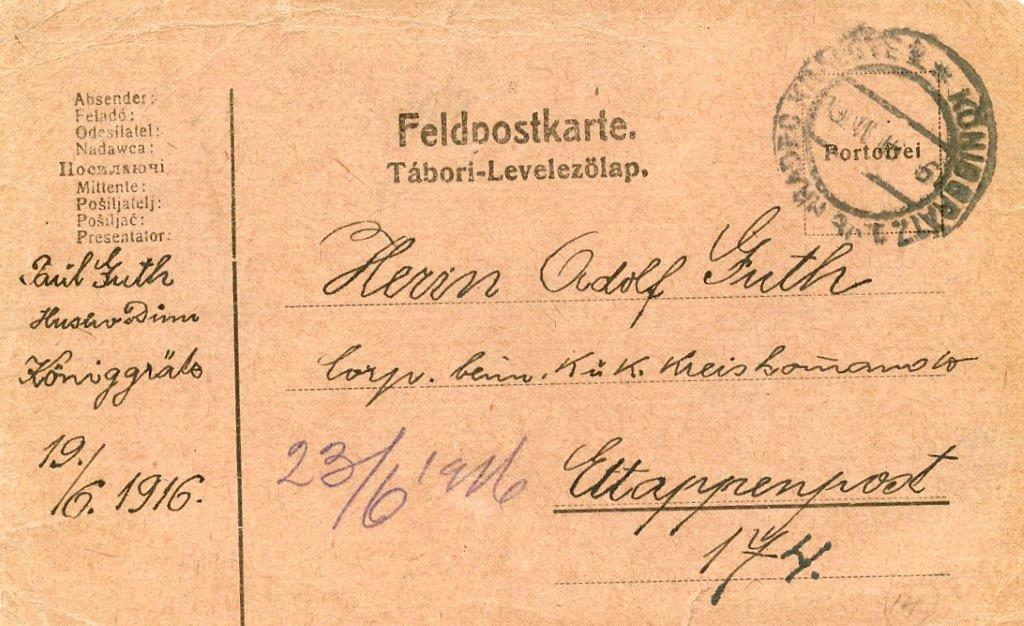 Absender:
Feladó:
Odesílatel:
Nadawca:
Посилаючі
Mittente:
Pošiljatelj:
Pošiljač:
Presentator:
Paul Guth
Königgrätz
19./6. 1916.
Feldpostkarte.
Tábori-Levelezőlap.
Portofrei
KÖNIGGRÄTZ 1
HRADEC
Herrn Adolf Guth
Corp. beim K u K. Kreiskomando
23/6 1916
Ettappenpost
174.